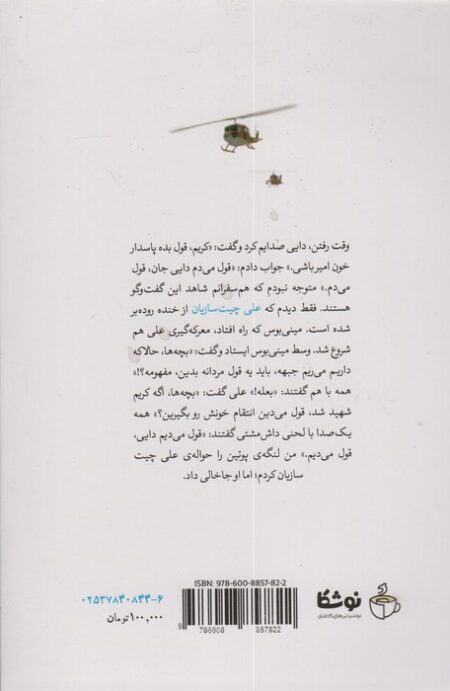 وقت رفتن، دایی صدایم کرد و گفت: «کریم، قول بده پاسدار
خون امیر باشی.» جواب دادم: «قول می‌دم دایی جان، قول
می‌دم.» متوجه نبودم که هم‌سفرانم شاهد این گفت‌وگو
هستند. فقط دیدم که علی چیت‌سازیان از خنده روده‌بر
شده است. مینی‌بوس که راه افتاد، معرکه‌گیری علی هم
شروع شد. وسط مینی‌بوس ایستاد و گفت: «بچه‌ها، حالا که
داریم می‌ریم جبهه، باید یه قول مردانه بدین، مفهومه؟!»
همه با هم گفتند: «بعله!» علی گفت: «بچه‌ها، اگه کریم
شهید شد، قول می‌دین انتقام خونش رو بگیرین؟» همه
یک‌صدا با لحنی داش‌مشتی گفتند: «قول می‌دیم دایی،
قول می‌دیم.» من لنگه‌ی پوتین را حواله‌ی علی چیت
سازیان کردم؛ اما او جاخالی داد.
ISBN: 978-600-8857-82-2
9 786008 857822
۰۲۵۳۷۸۴۰۸۴۴-۶
۱۰۰,۰۰۰ تومان
نوشکا
نوشیدنی‌های کاغذی